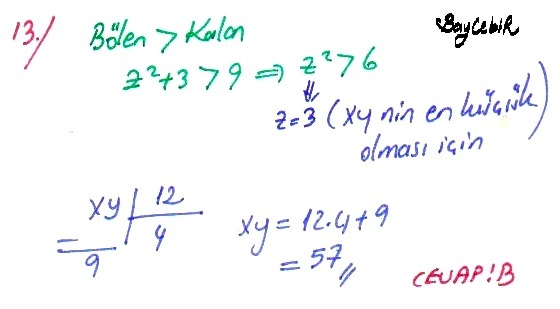 13./ Bölen > Kalan
Baycebir
z²+3 > 9 ⟹ z² > 6
⇓
z=3 (xy nin en küçük
olması için)
xy | 12
= 4
9
xy = 12.4+9
= 57//
CEVAP: B